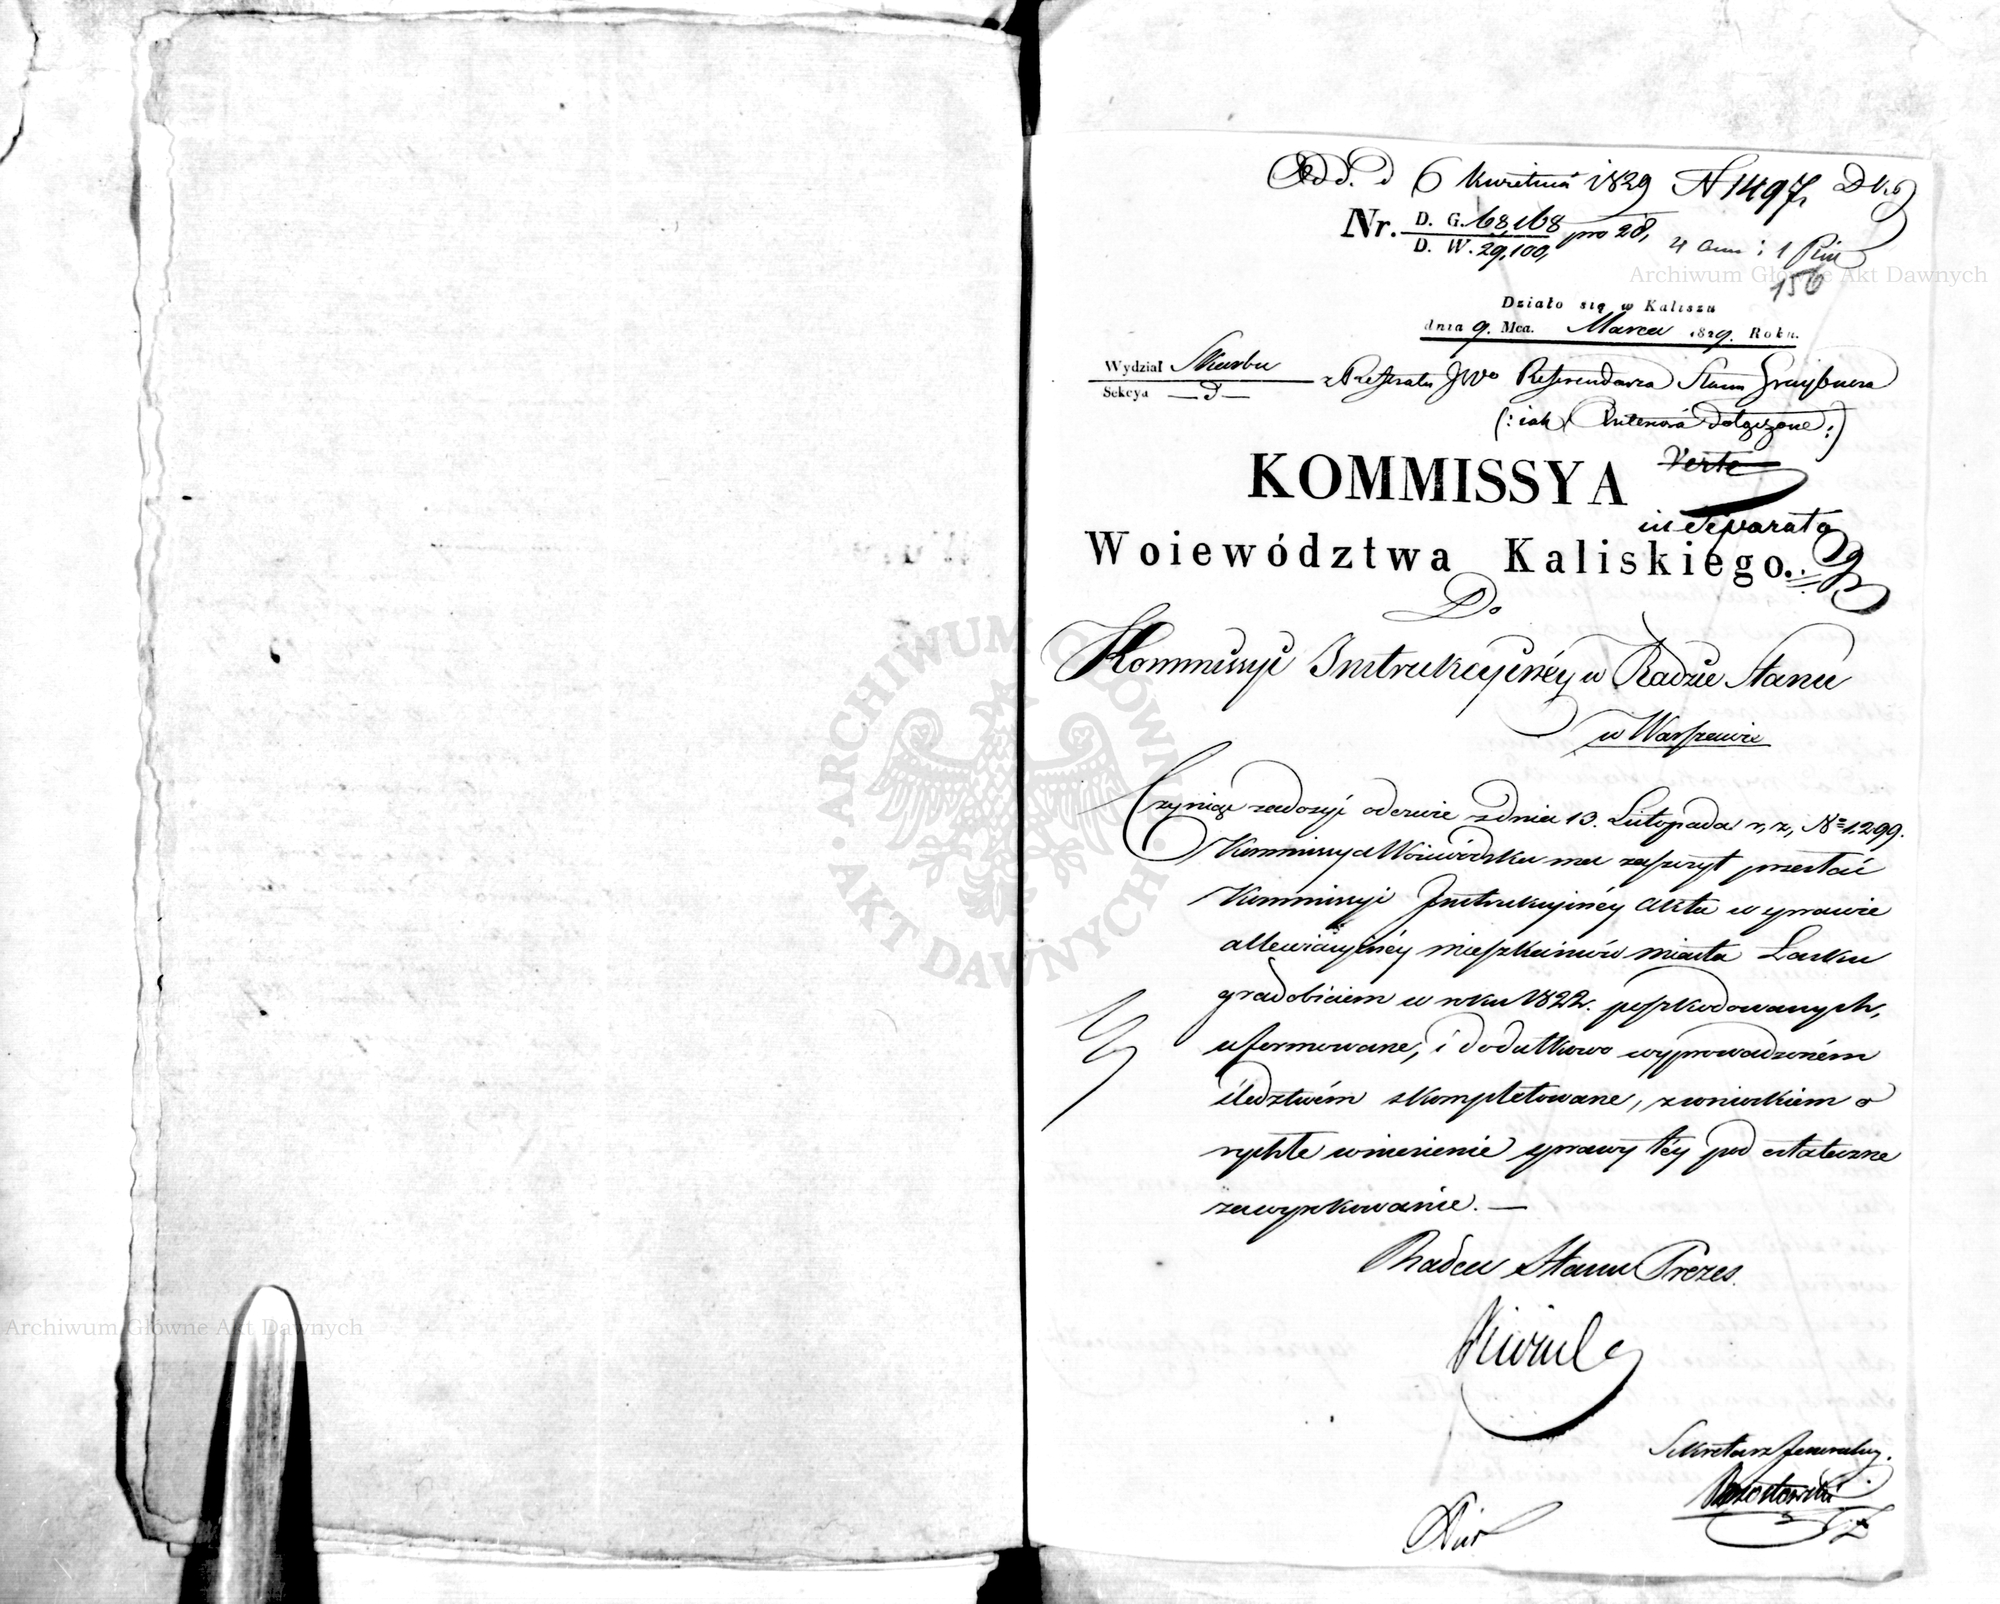 Odd. d 6 Kwietnia 1829 N 1497,
Nr. D. G. 68,168 pro 28,
D. W. 29,100,
4 ann: 1
156
Działo się w Kaliszu
dnia 9. Mca. Marca 1829. Roku.
Wydział Skarbu
Sekcya
z Referatu JWo Referendarza Stanu
(: iak dołączone :)
Verte
in Separato
KOMMISSYA
Woiewództwa Kaliskiego.
Do
Kommissyi Instrukcyinéy w Radzie Stanu
w Warszawie
Czyniąc zadosyć odezwie z dnia 13. Listopada r, z, No 1,299.
Kommissya Woiewódzka ma zaszczyt przesłać
Kommissyi Instrukcyinéy Akta w sprawie
allewiacyinéy mieszkańców miasta Łasku
gradobiciem w roku 1822. poszkodowanych,
uformowane, i dodatkowo wyprowadzoném
śledztwém skompletowane, z wnioskiem o
rychłe wniesienie sprawy téy pod ostateczne
zawyrokowanie. —
Radca Stanu Prezes.
Sekretarz Jeneralny.
Archiwum Główne Akt Dawnych
Archiwum Główne Akt Dawnych
ARCHIWUM GŁÓWNE · AKT DAWNYCH ·